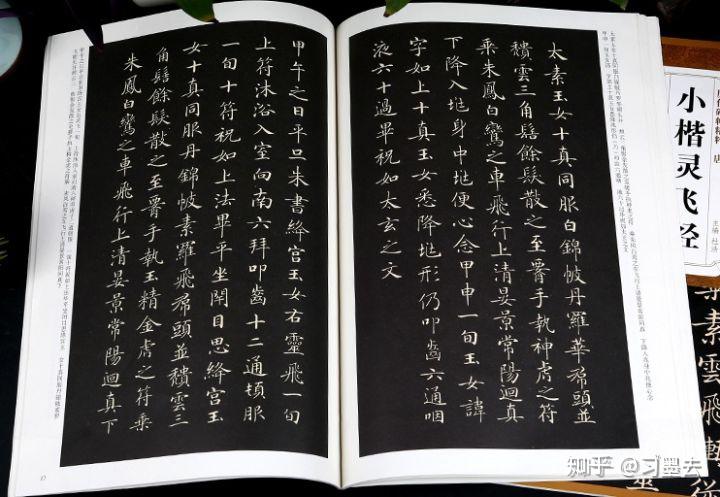 太素玉女十真同服白錦帔丹羅華帬頭並
穨雲三角髻餘髮散之至腰手執神虎之符
乘朱鳳白鸞之車飛行上清晏景常陽迴真
下降入兆身中兆便心念甲申一旬玉女諱
字如上十真玉女悉降兆形仍叩齒六通咽
液六十過畢祝如太玄之文
甲午之日平旦朱書絳宮玉女右靈飛一旬
上符沐浴入室向南六拜叩齒十二通頓服
一旬十符祝如上法畢平坐閇目思絳宮玉
女十真同服丹錦帔素羅飛帬頭並穨雲三
角髻餘髮散之至腰手執玉精金虎之符乘
朱鳳白鸞之車飛行上清晏景常陽迴真下
小楷灵飞经
素雲飛
知乎 @习墨去